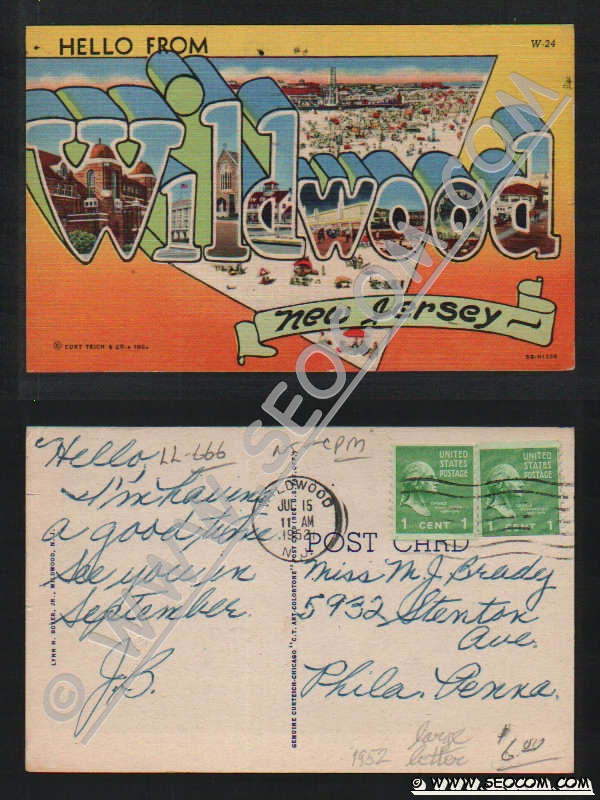 HELLO FROM
W-24
Wildwood
New Jersey
© CURT TEICH & CO., INC.
WWW.SEOCOM.COM
Hello, LL-666
NJ CPM
UNITED STATES POSTAGE
1 CENT 1
UNITED STATES POSTAGE
1 CENT 1
WILDWOOD
11 AM
1952
N.J.
I'm having
a good time
See you in
September.
J.B.
POST CARD
Miss M.J. Brady
5932 Stenton
Ave.
Phila. Penna.
LYNN H. BOYER, JR., WILDWOOD, N.J.
GENUINE CURTEICH-CHICAGO "C.T. ART-COLORTONE" POST CARD
1952
large
letter
$6.00
© WWW.SEOCOM.COM
© www.seocom.com